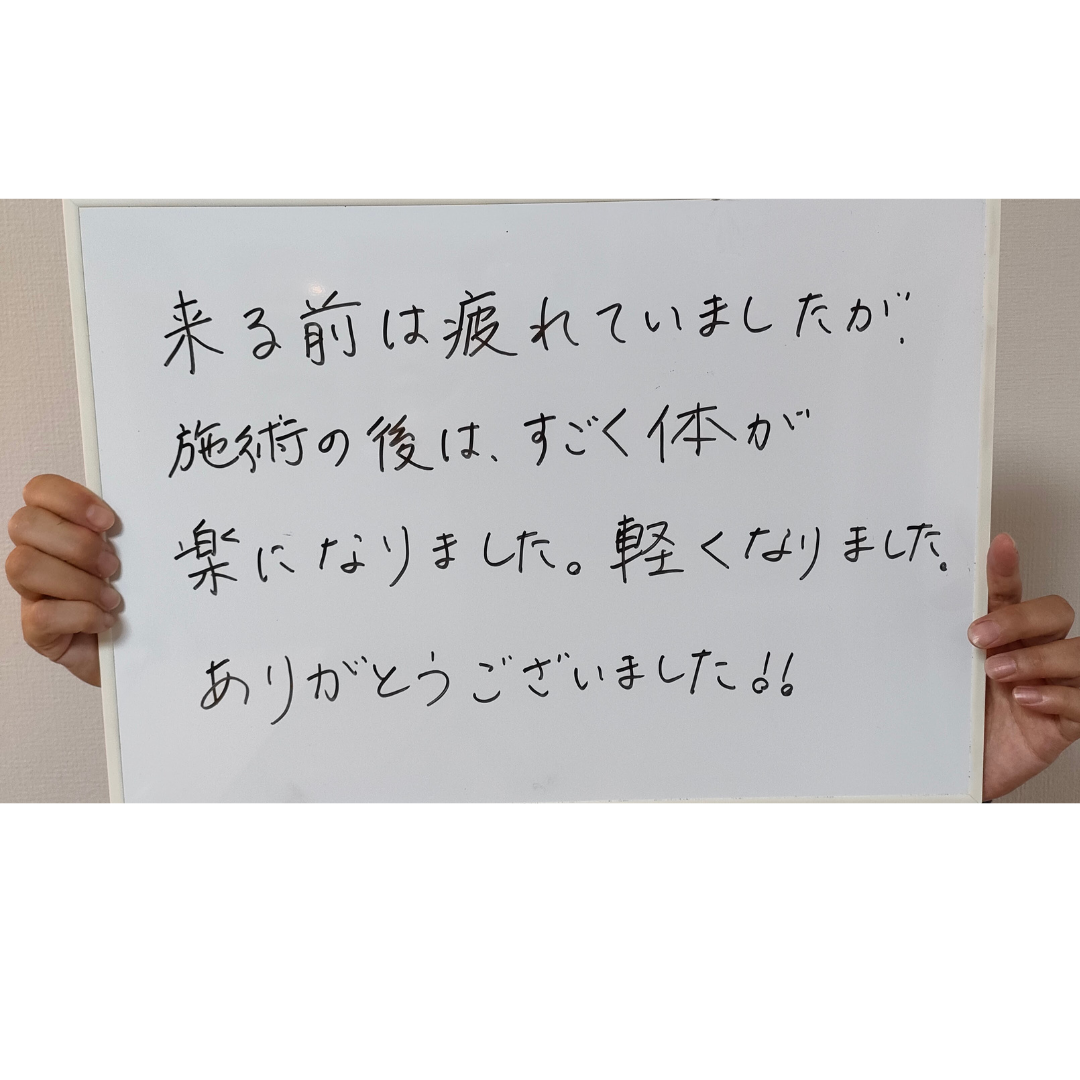 来る前は疲れていましたが、
施術の後は、すごく体が
楽になりました。軽くなりました。
ありがとうございました!!